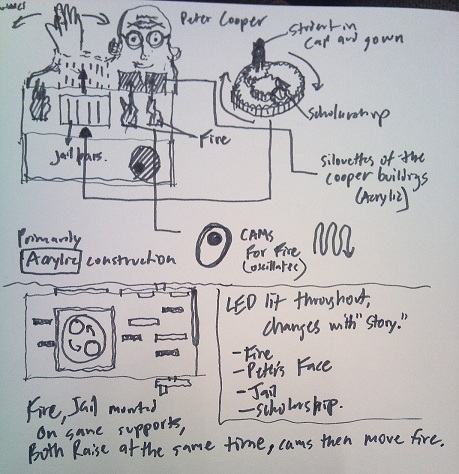 Peter Cooper
Student in
cap and gown
Scholarship
Fire
Jail bars.
Silouettes of the
Cooper buildings
(Acrylic)
CAMS
for fire
(oscillates)
Primarily
Acrylic construction
LED lit throughout,
changes with "story."
- Fire
- Peter's Face
- Jail
- Scholarship.
Fire, Jail mounted
on same supports,
Both Raise at the same time, cams then move fire.